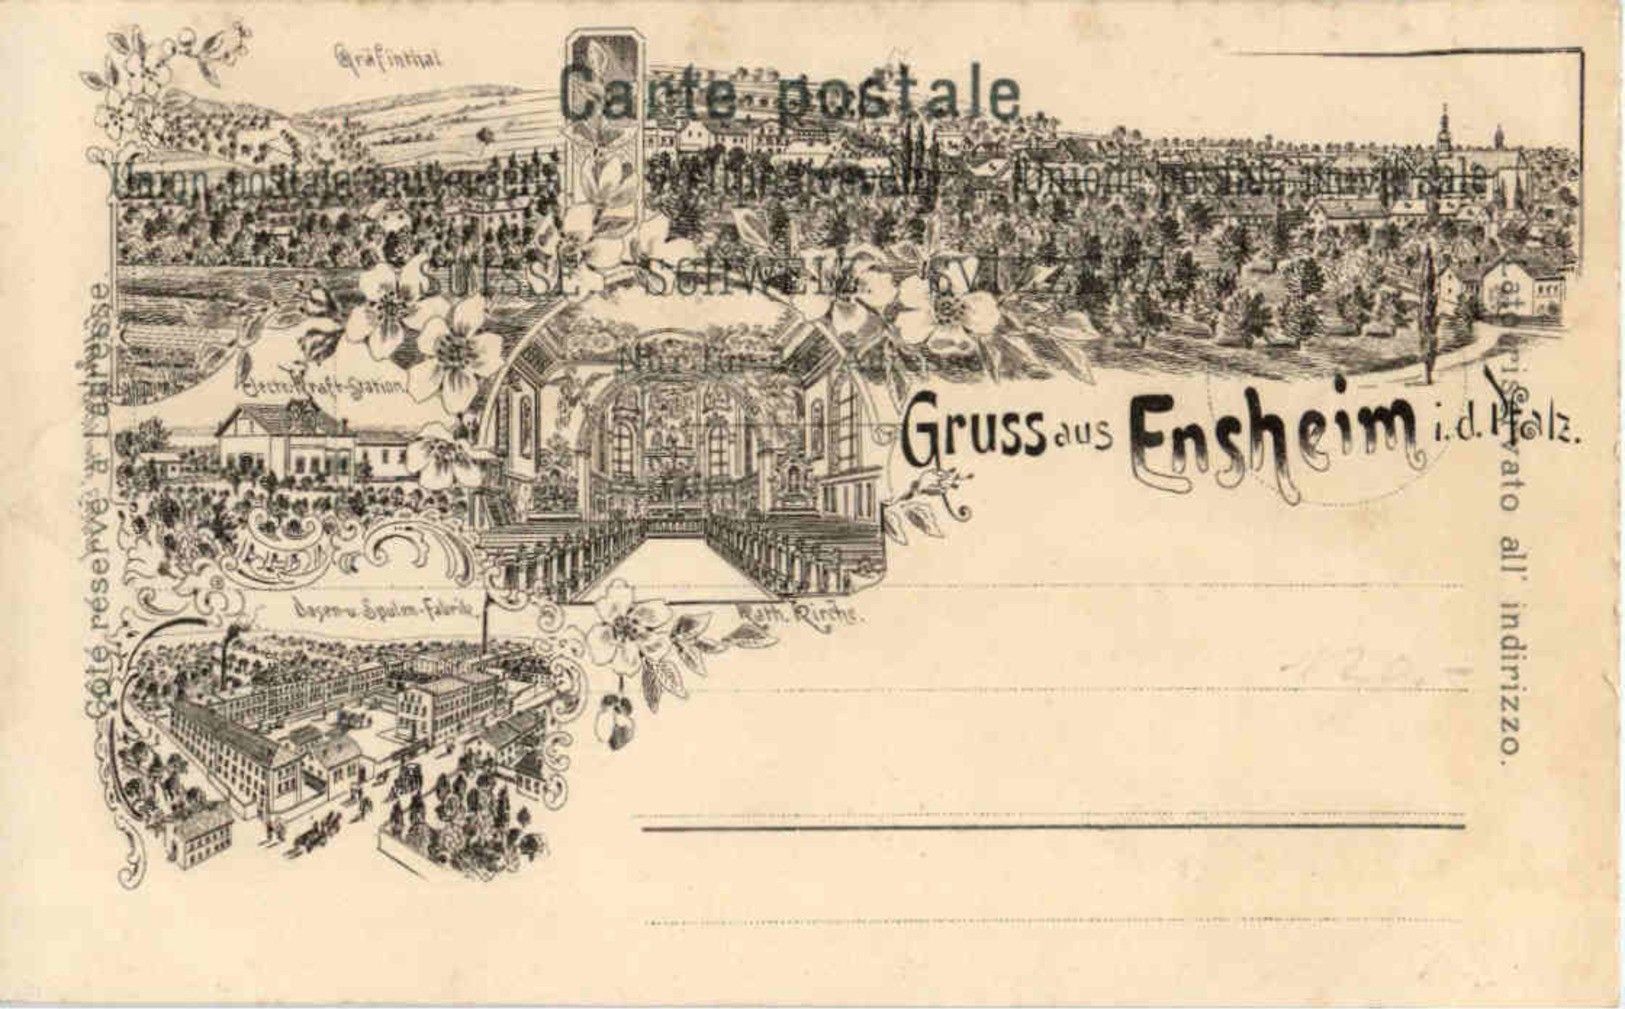 Gräfinthal
Carte postale
Union postale universelle Weltpostverein Unione postale universale
SUISSE. SCHWEIZ. SVIZZERA.
Nur für die Adresse
Côté réservé à l'adresse.
Lato riservato all' indirizzo.
Electr. Kraft-Station.
Gruss aus Ensheim i. d. Pfalz.
Dosen- u. Spulen-Fabrik
Kath. Kirche.
120,-